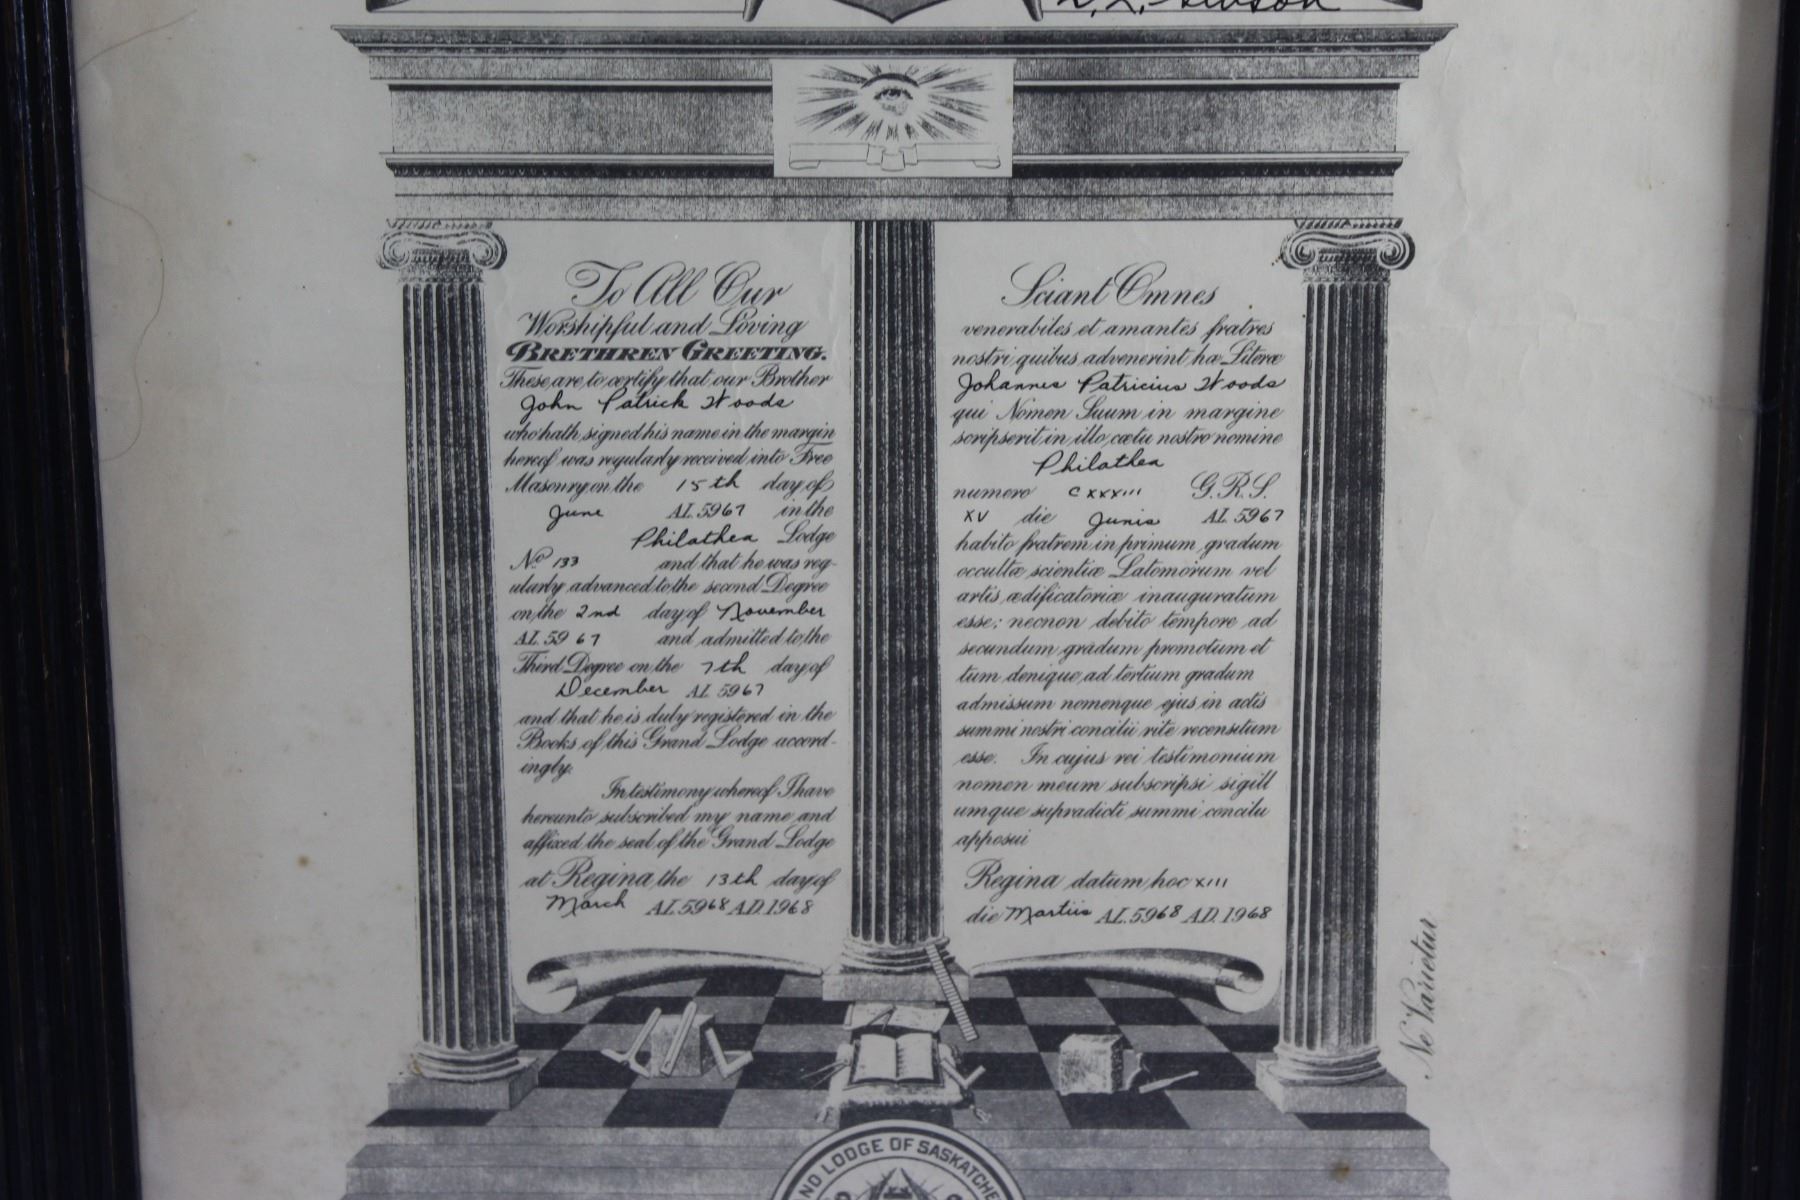 To All Our
Worshipful and Loving
BRETHREN GREETING.
These are to certify that our Brother
John Patrick Woods
who hath signed his name in the margin
hereof was regularly received into Free
Masonry on the 15th day of
June A.L. 5967 in the
Philathea Lodge
No 133 and that he was reg-
ularly advanced to the second Degree
on the 2nd day of November
A.L. 5967 and admitted to the
Third Degree on the 7th day of
December A.L. 5967
and that he is duly registered in the
Books of this Grand Lodge accord-
ingly.
In testimony whereof I have
hereunto subscribed my name and
affixed the seal of the Grand Lodge
at Regina the 13th day of
March A.L. 5968 A.D. 1968
Sciant Omnes
venerabiles et amantes fratres
nostri quibus advenerint hæ Literæ
Johannes Patricius Woods
qui Nomen Suum in margine
scripserit in illo cœtu nostro nomine
Philathea
numero CXXXIII G.R.S.
XV die Junis A.L. 5967
habito fratrem in primum gradum
occultæ scientiæ Latomorum vel
artis ædificatoriæ inauguratum
esse; necnon debito tempore ad
secundum gradum promotum et
tum denique ad tertium gradum
admissum nomenque ejus in actis
summi nostri concilii rite recensitum
esse. In cujus rei testimonium
nomen meum subscripsi sigill
umque supradicti summi concilii
apposui
Regina datum hoc XIII
die Martiis A.L. 5968 A.D. 1968
Ne Varietur
LODGE OF SASKATCHE